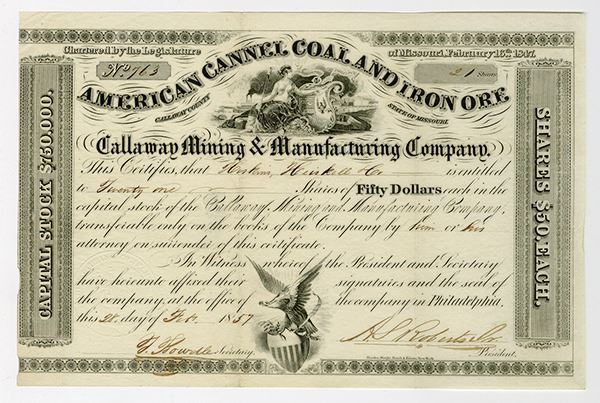 Chartered by the Legislature of Missouri, February 15th 1847.
No. 763
21 Shares
AMERICAN CANNEL COAL AND IRON ORE
CALLAWAY COUNTY
STATE OF MISSOURI
Callaway Mining & Manufacturing Company.
This Certifies, that Haskell & Co is entitled
to Twenty one Shares of Fifty Dollars each in the
capital stock of the Callaway Mining and Manufacturing Company;
transferable only on the books of the Company by him or his
attorney on surrender of this certificate.
In Witness whereof the President and Secretary
have hereunto affixed their signatures and the seal of
the company, at the office of the company in Philadelphia,
this 28 day of Feb. 1857
Secretary.
President.
CAPITAL STOCK $750,000.
SHARES $50, EACH.